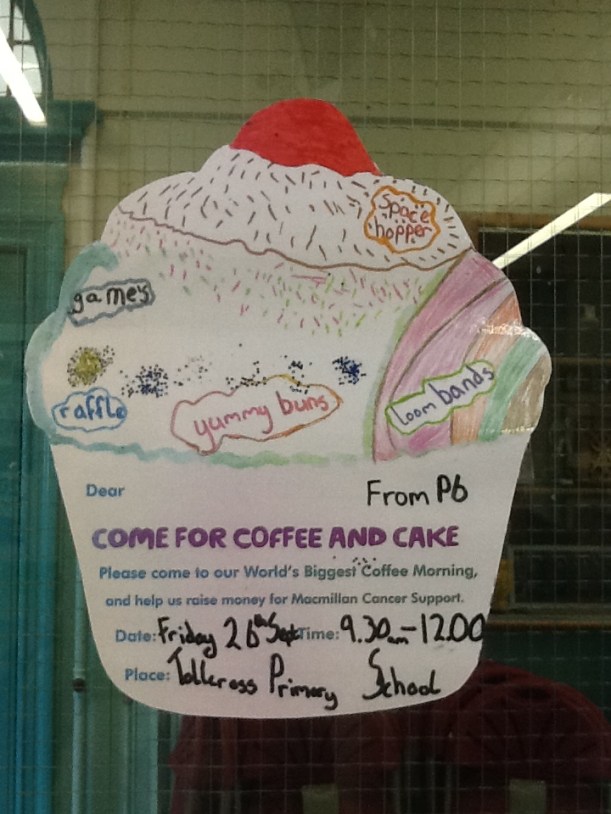 Space
hopper
games
raffle
yummy buns
loom bands
Dear
From P6
COME FOR COFFEE AND CAKE
Please come to our World's Biggest Coffee Morning,
and help us raise money for Macmillan Cancer Support.
Date: Friday 26th Sept Time: 9.30am-12.00
Place: Tollcross Primary School